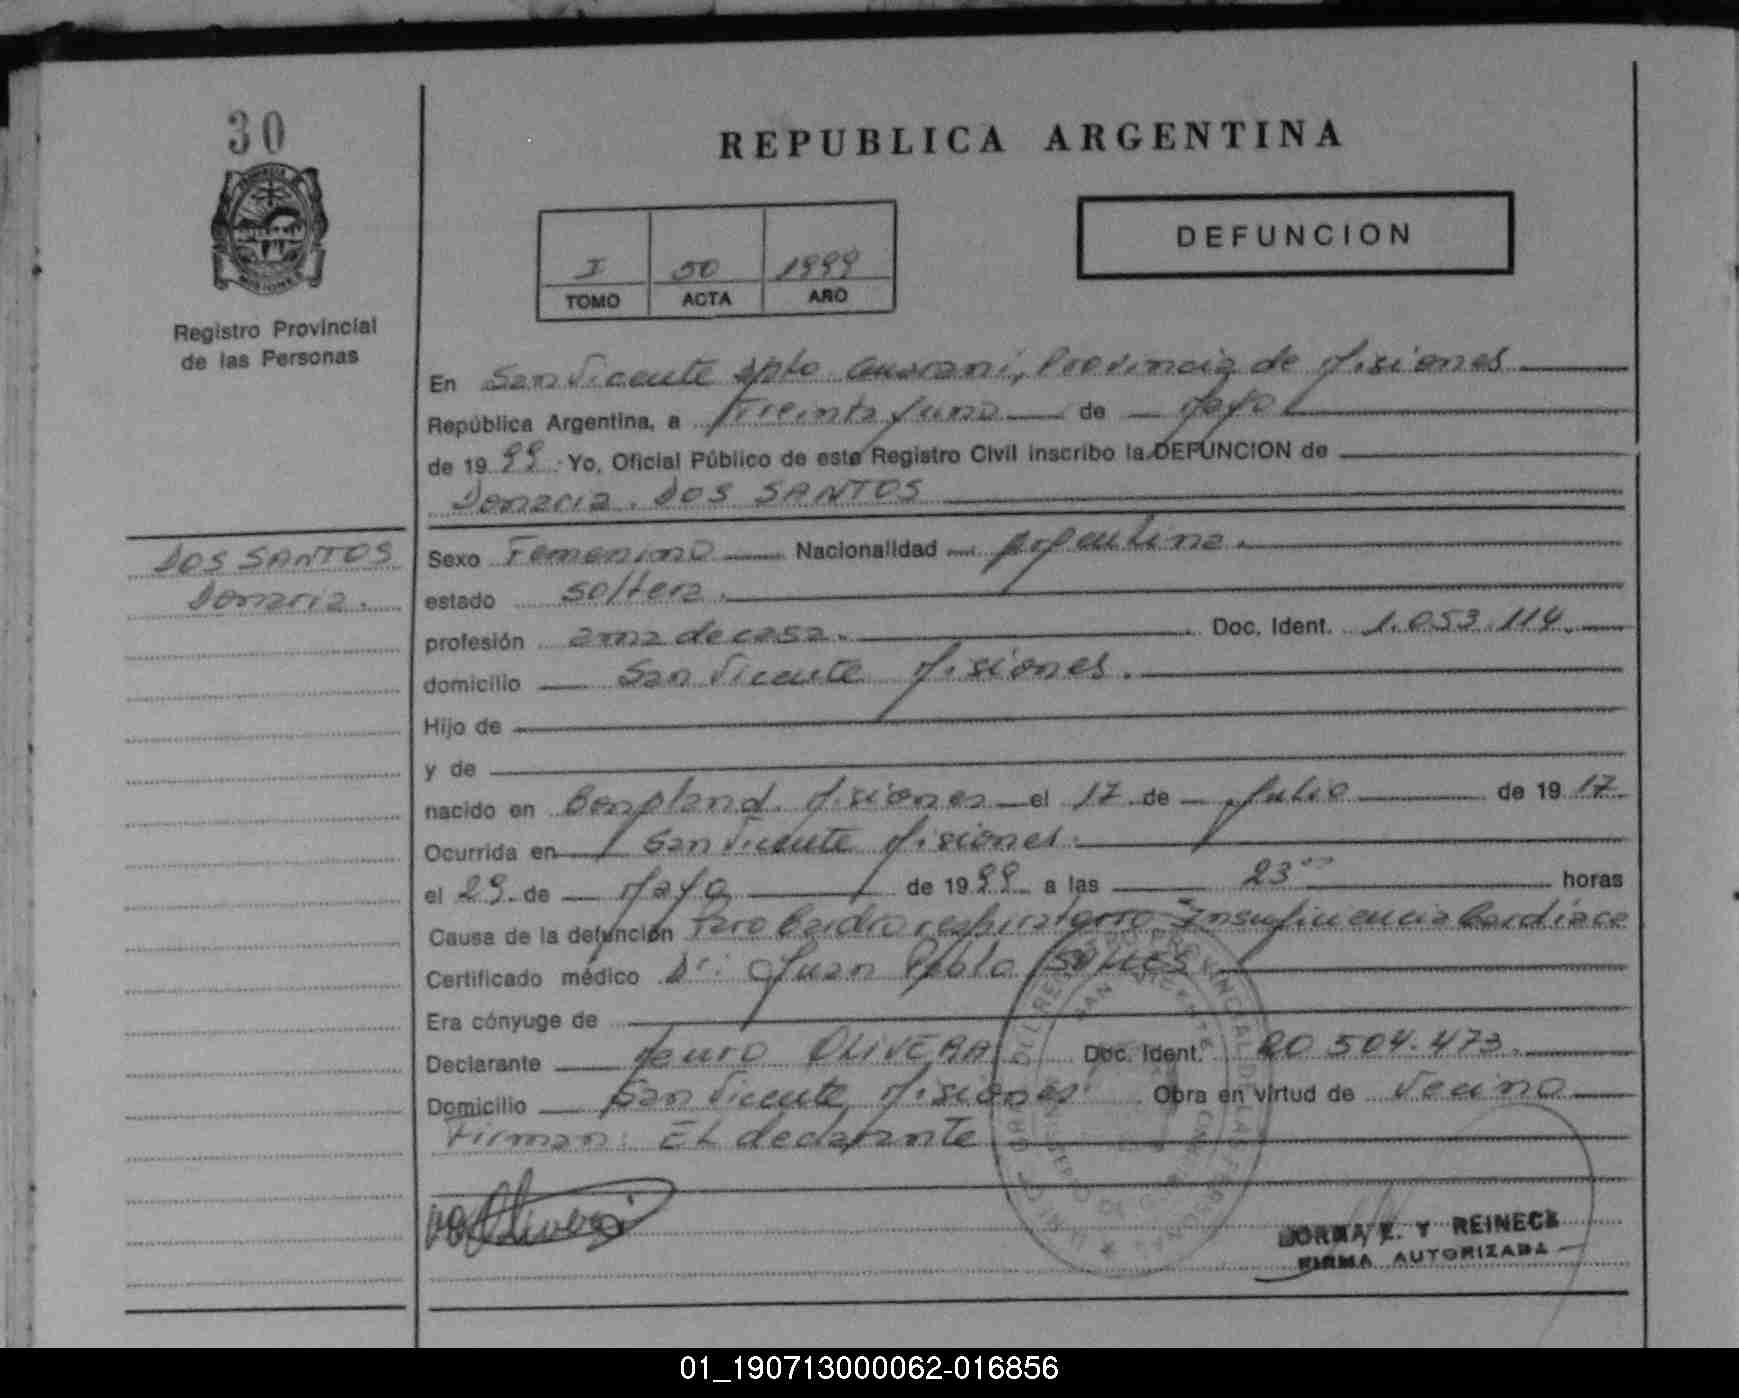 30
REPUBLICA ARGENTINA
DEFUNCION
I 50 1999
TOMO ACTA AÑO
Registro Provincial
de las Personas
En San Vicente Dpto Guarani, Provincia de Misiones
República Argentina, a Treinta y uno de Mayo
de 1999 Yo, Oficial Público de este Registro Civil inscribo la DEFUNCION de
Donaria. DOS SANTOS
DOS SANTOS
Donaria.
Sexo Femenino Nacionalidad Argentina.
estado soltera.
profesión ama de casa. Doc. Ident. 1.053.114.
domicilio San Vicente Misiones.
Hijo de
y de
nacido en Bonpland. Misiones el 17 de Julio de 1917
Ocurrida en San Vicente Misiones.
el 29 de Mayo de 1999 a las 23°° horas
Causa de la defunción Paro Cardio respiratorio Insuficiencia Cardiaca
Certificado médico Dr: Juan Pablo
Era cónyuge de
Declarante OLIVERA Doc. Ident. 20.504.473.
Domicilio San Vicente Misiones. Obra en virtud de Vecino
Firman: EL declarante
Olivera
NORMA E. Y REINECK
FIRMA AUTORIZADA
01_190713000062-016856